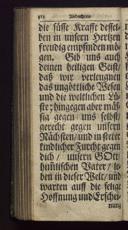 die süsse Krafft dessel-
ben in unsern Hertzen
freudig empfinden mö-
gen. Gib uns auch
deinen heiligen Geist/
daß wir verleugnen
das ungöttliche Wesen
und die weltlichen Lü-
ste; hingegen aber mäs-
sig gegen uns selbst/
gerecht gegen unsern
Nächsten/ und in steter
kindlicher Furcht gegen
dich/ unsern GOtt
himmlischen Vater/ le-
ben in dieser Welt/ und
warten auff die selige
Hoffnung und Erschei-
nung